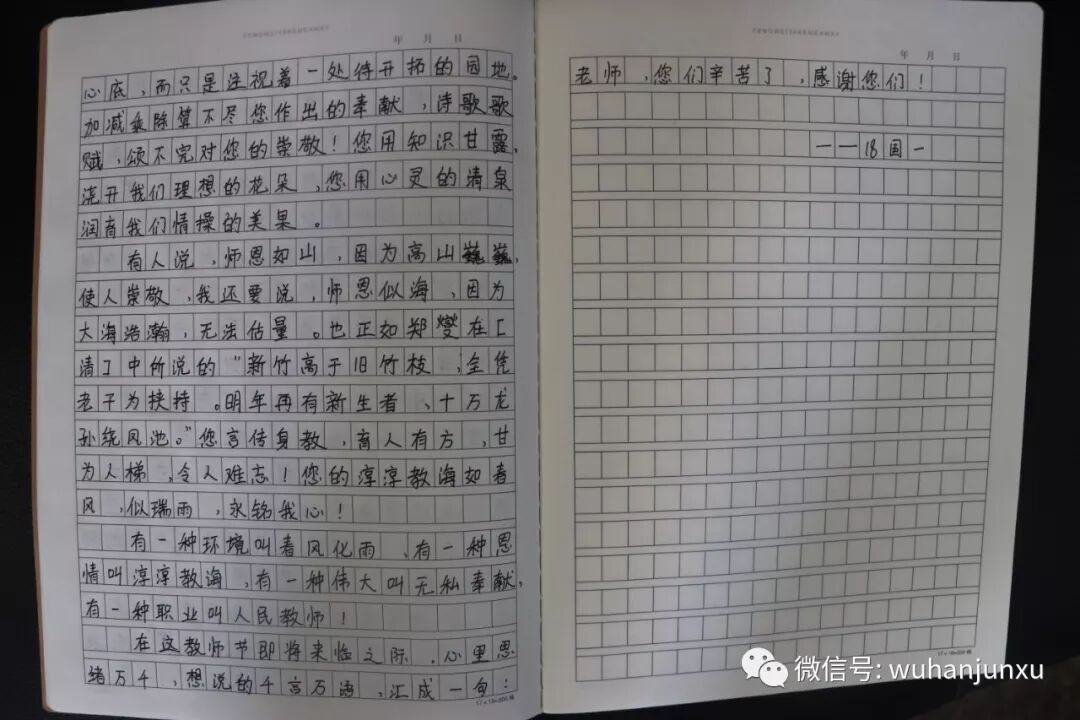 年 月 日
心底，而只是注视着一处待开拓的园地。
加减乘除算不尽您作出的奉献，诗歌歌
赋，颂不完对您的崇敬！您用知识甘露，
浇开我们理想的花朵，您用心灵的清泉
润育我们情操的美果。
有人说，师恩如山，因为高山巍巍，
使人崇敬，我还要说，师恩似海，因为
大海浩瀚，无法估量。也正如郑燮在［
清］中所说的“新竹高于旧竹枝，全凭
老干为扶持。明年再有新生者，十万龙
孙绕凤池。”您言传身教，育人有方，甘
为人梯，令人难忘！您的淳淳教海如春
风，似瑞雨，永铭我心！
有一种环境叫春风化雨，有一种恩
情叫淳淳教海，有一种伟大叫无私奉献，
有一种职业叫人民教师！
在这教师节即将来临之际，心里思
绪万千，想说的千言万语，汇成一句：
年 月 日
老师，您们辛苦了，感谢您们！
——18国一
微信号: wuhanjunxu